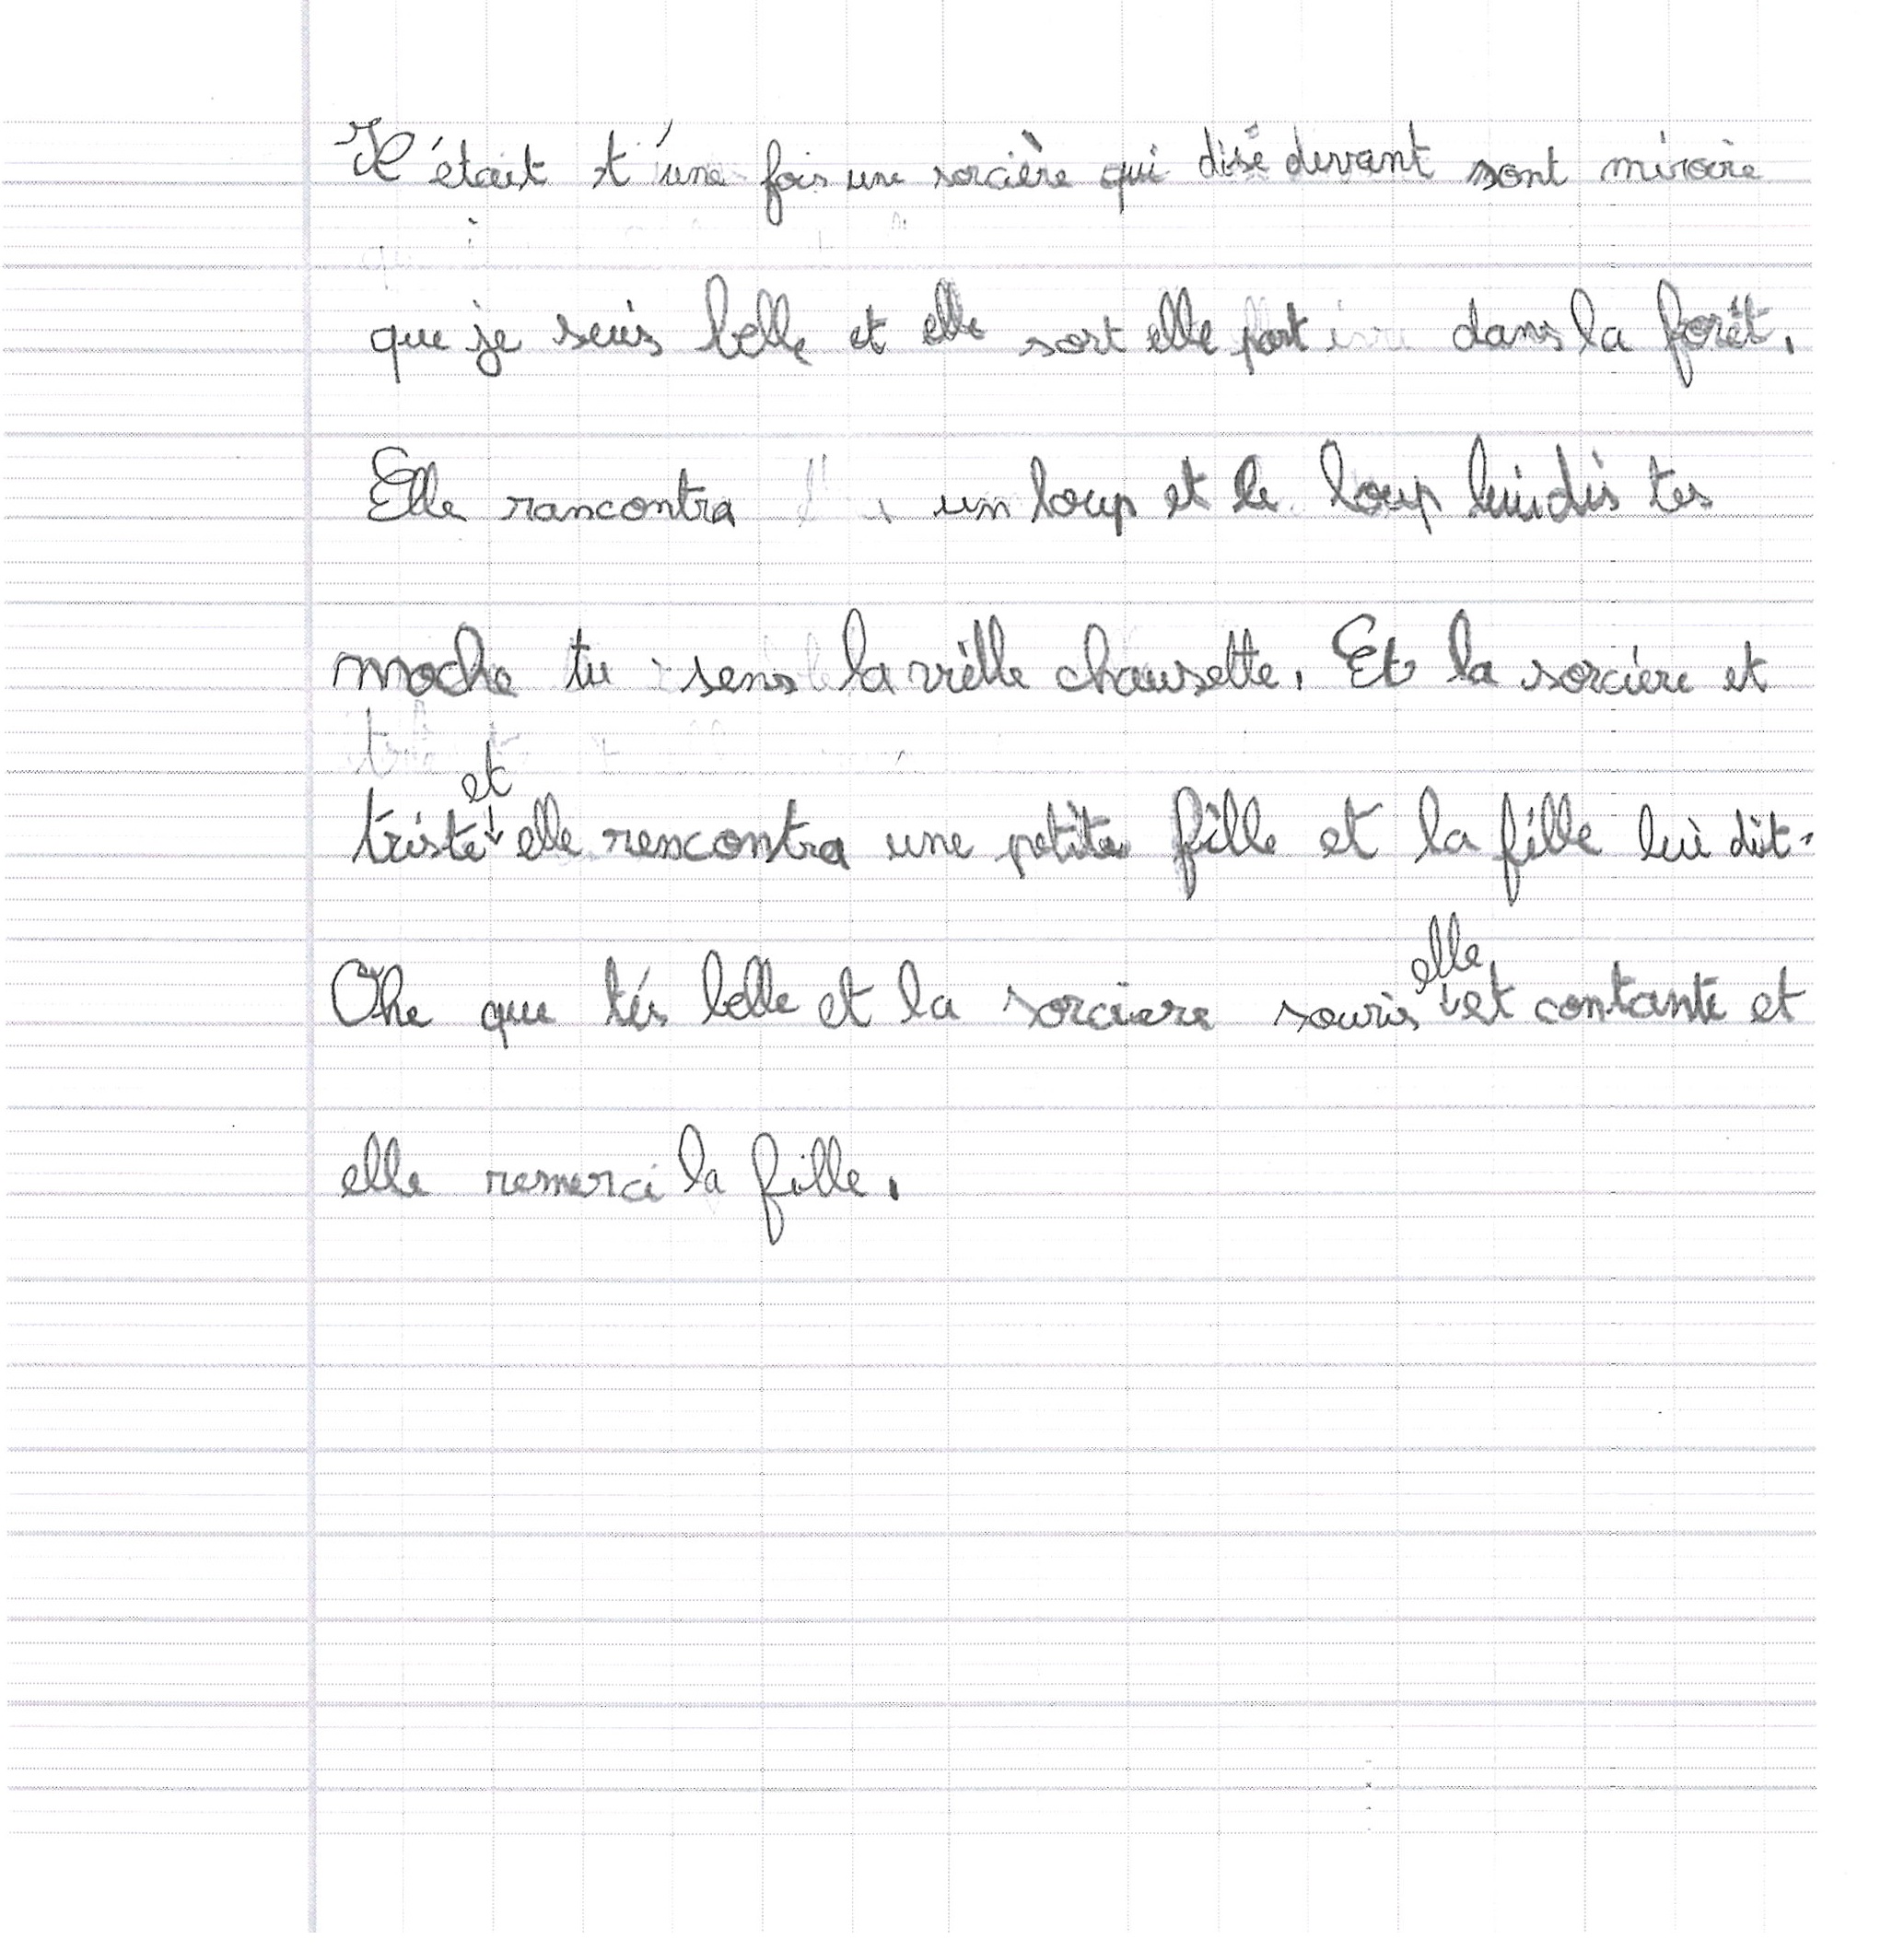 Il était t'une fois une sorcière qui disé devant sont miroire
que je suis belle et elle sort elle part dans la forêt.
Elle rancontra un loup et le loup lui dis tes
moche tu sens la vielle chausette. Et la sorcière et
et
triste elle rencontra une petite fille et la fille lui dit.
elle
Ohe que tés belle et la sorciere souris et contante et
elle remerci la fille.